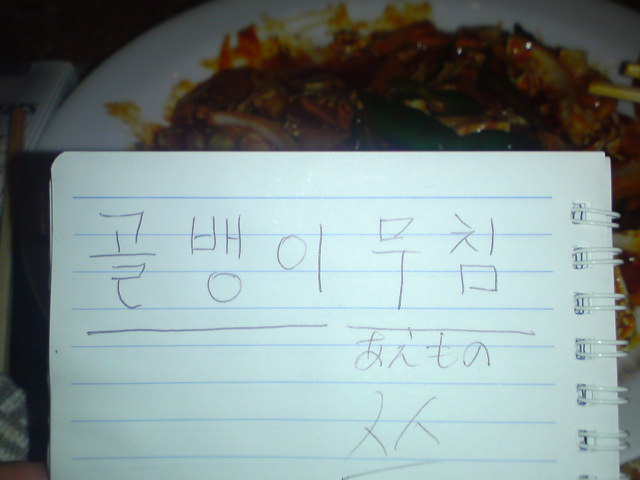 골뱅이 무침
あえもの